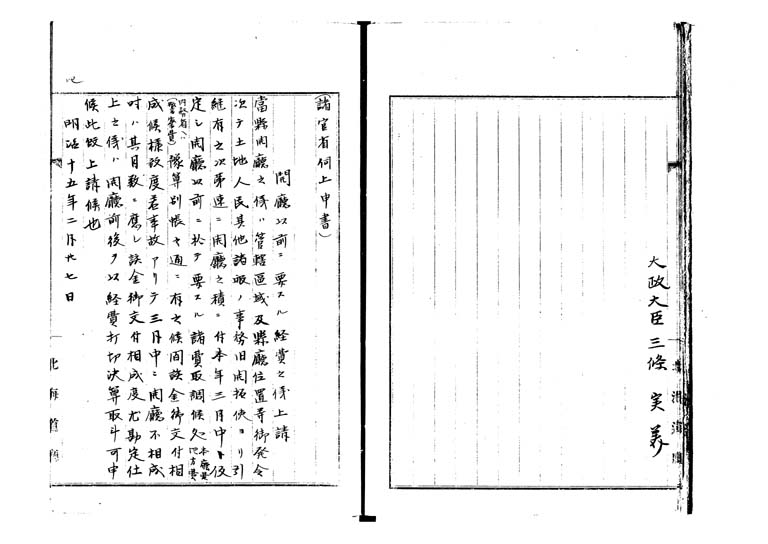 大政大臣三條実美
(諸官省伺上申書)
開廳以前ニ要スル経費之儀上請
當縣開廳之儀ハ管轄區域及縣廳位置等御発令
次テ土地人民其他諸般ノ事務旧開拓使ヨリ引
継有之次第速ニ開廳之積ニ付本年三月中ト仮
定シ開廳以前ニ於テ要スル諸費取調候処 本廳費 地方費
内務省ハ 警察費 豫算別帳廿通ニ有之候間該金御交付相
成候様致度若事故アリテ三月中ニ開廳不相成
時ハ其日数ニ應シ該金御交付相成度尤勘定仕
上之儀ハ開廳前後ヲ以経費打切決算取斗可申
候此段上請候也
明治十五年二月廿七日
北海道